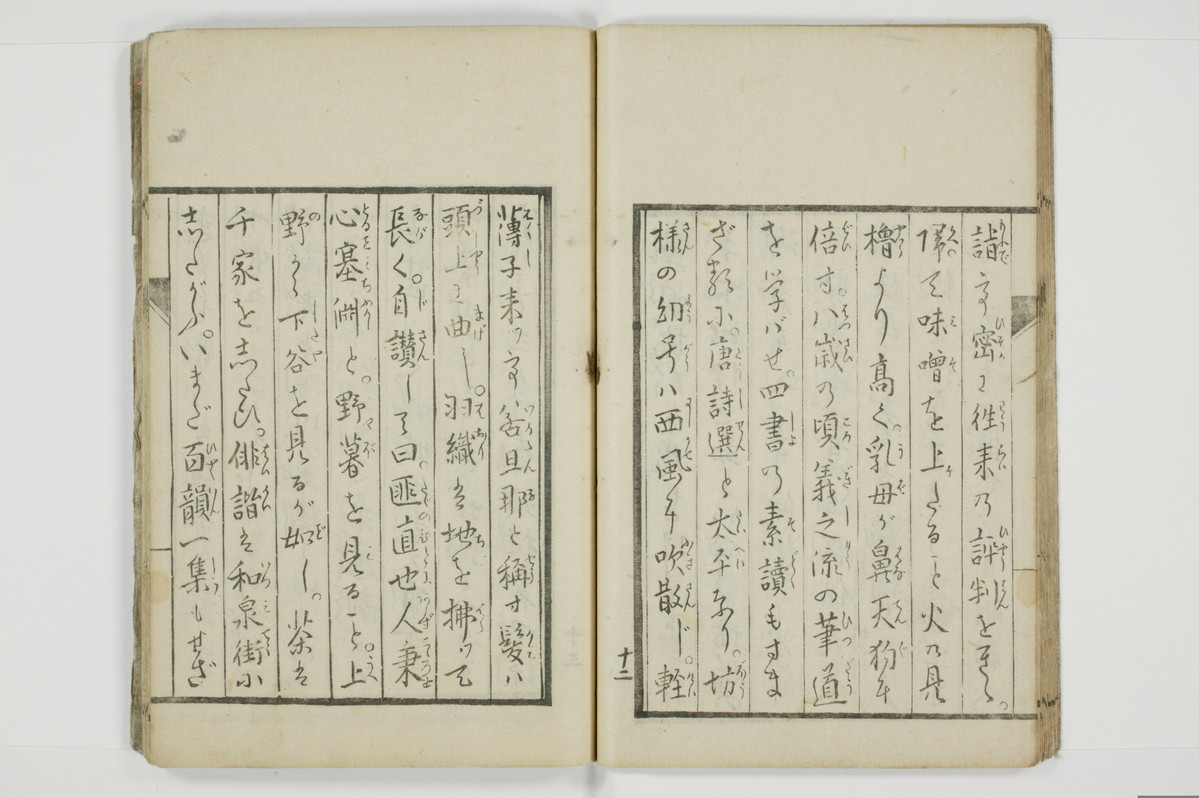 詣て密に徃来の評判をきく。
偐て味噌を上たること火の見
櫓より高く。乳母が鼻天狗に
倍す。八歳の頃義之流の筆道
を学ばせ。四書の素讀もすま
ざる小。唐詩選と太平なり。坊
様の幼号ハ西風に吹散じ。軽
十二
薄子来ッて若旦那と称す髪ハ
頭上に曲し。羽織は地を拂ッて
長く。自讃して曰。匪直也人秉
心塞淵と。野暮を見ること。上
野から下谷を見るが如し。茶は
千家をしたひ。俳諧は和泉街に
したがふ。いまだ百韻一集もせざ